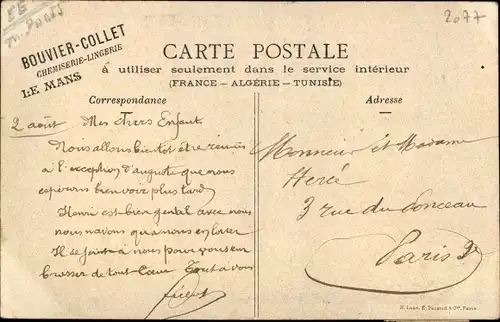 2077
BOUVIER-COLLET
CHEMISERIE-LINGERIE
LE MANS
CARTE POSTALE
à utiliser seulement dans le service intérieur
(FRANCE — ALGÉRIE — TUNISIE)
Correspondance
Adresse
2 août Mes Chers Enfant
Nous allons bientot etre reunis
à l'exception d'auguste que nous
espirons bien voir plus tard
Henri est bien genial avec nous
nous navons qu'a nous en louer
Il se joint a nous pour vous em
brasser de tout Cœur Tout à vous
Monsieur et Madame
Hercé
3 rue du Ponceau
Paris 2e